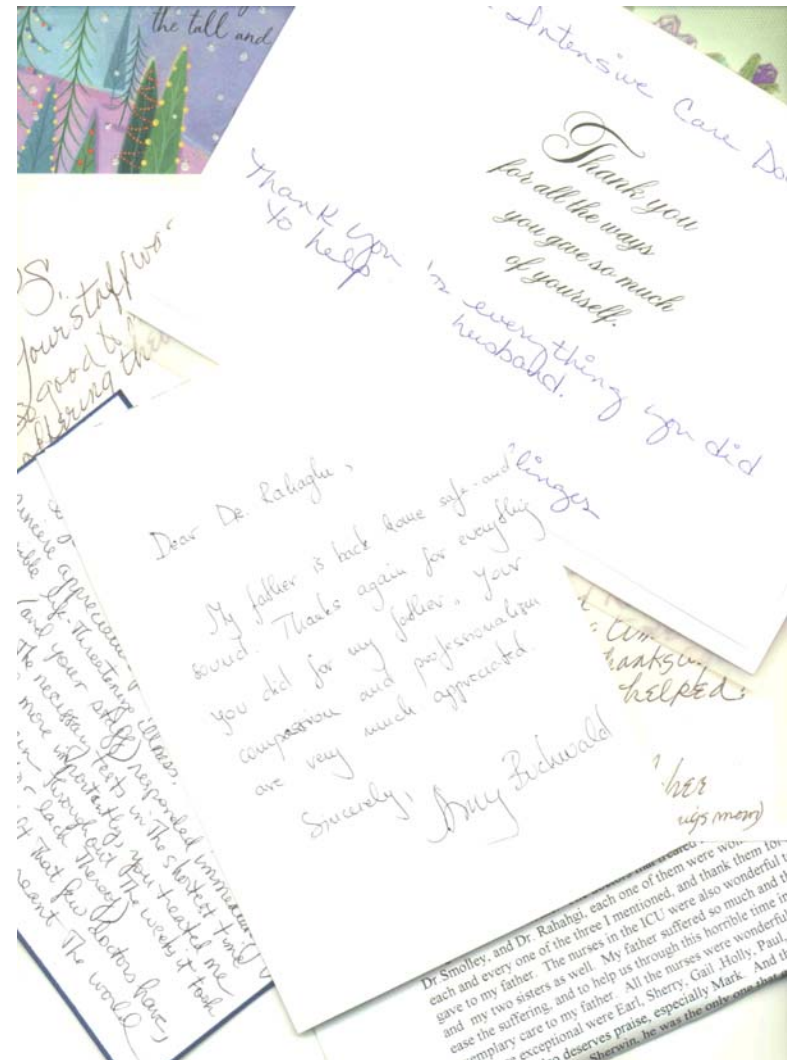 the tall and
Intensive Care Do
Thank you
for all the ways
you gave so much
of yourself.
Thank you in everything you did
to help husband.
linger
S.
Your staff wo
so good to
offering the
Dear Dr. Rahaghi,
My father is back home safe-and
sound. Thanks again for everything
you did for my father. Your
compassion and professionalism
are very much appreciated.
Sincerely,
Amy Buchwald
sincere appreciation
life-threatening illness.
(and your staff) responded immed
The necessary tests in the shortest time
more importantly, you treated me
throughout the weeks it took
or lack thereof)
that few doctors have,
meant the world
hanks
helped.
her
mom)
treated
each one of them were wo
Dr. Smolley, and Dr. Rahahgi, each one of them were won
each and every one of the three I mentioned, and thank them for
gave to my father. The nurses in the ICU were also wonderful t
and my two sisters as well. My father suffered so much and th
ease the suffering, and to help us through this horrible time in
emplary care to my father. All the nurses were wonderful
exceptional were Earl, Sherry, Gail ,Holly, Paul,
so deserves praise, especially Mark. And th
herwin, he was the only one that